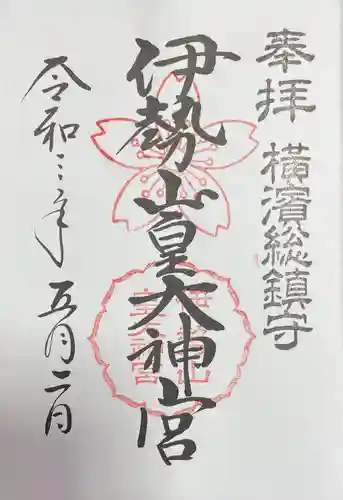 奉拝 横濱総鎮守
伊勢山皇大神宮
令和三年 五月二日